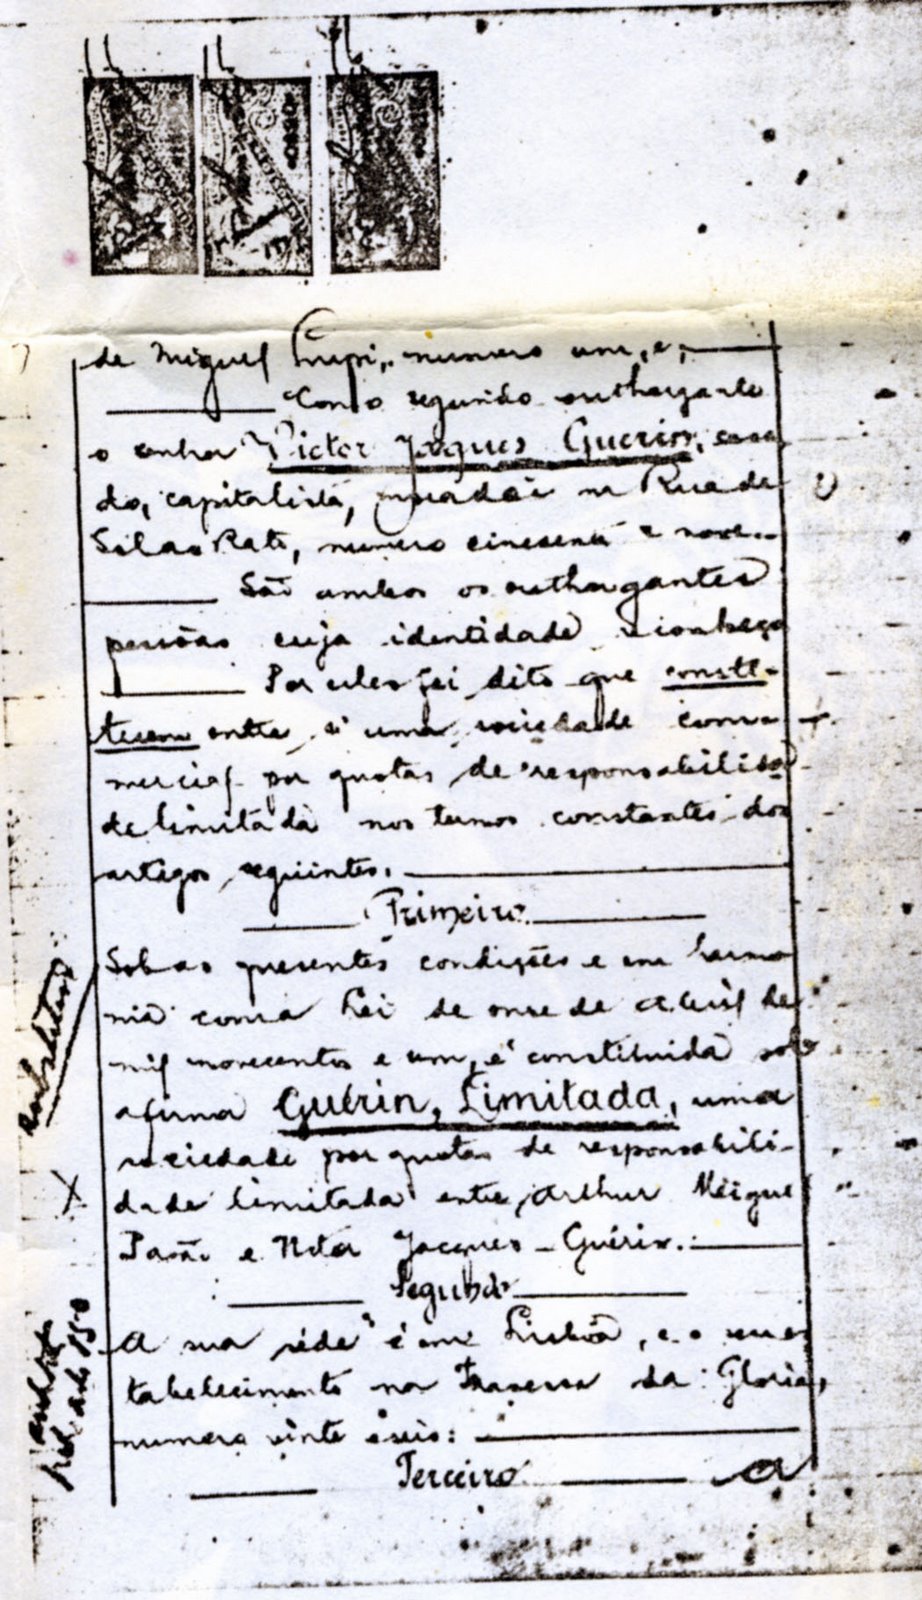 de Miguel Lupi, numero um, e,
Como segundo outhorgante
o senhor Victor Jaques Guerin, casa
do, capitalista, morador na Rua de
São ambos os outhorgantes
pessôas cuja identidade reconheço
Por eles foi dito que consti-
tuem entre si uma sociedade com
mercial por quotas de responsabilida
de limitada nos termos constantes dos
artigos seguintes.
Primeiro
Sob as presentes condições e em harmo
nia com a Lei de onze de Abril de
mil novecentos e um, é constituida sob
a firma Guérin, Limitada, uma
sociedade por quotas de responsabili-
dade limitada entre Arthur Miguel
e Victor Jacques Guérin.
Segundo
A sua séde é em Lisbôa, e o seu es
tabelecimento na Travessa da Gloria,
numero vinte e seis:
Terceiro